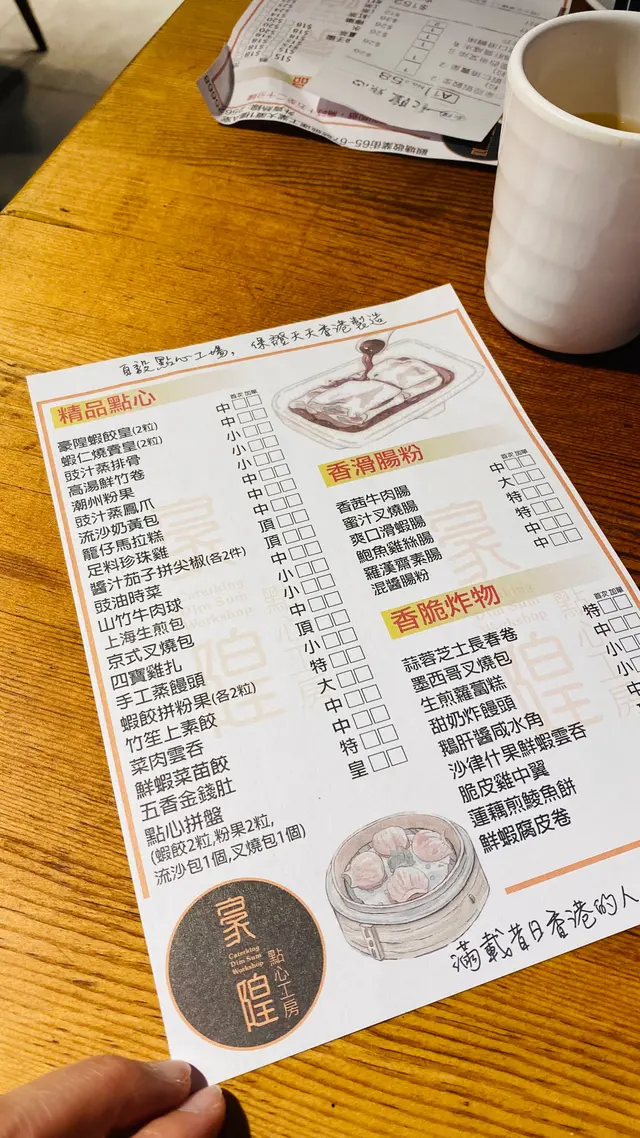 自設點心工場，保證天天香港製造
精品點心
首次 加單
豪隍蝦餃皇(2粒)
蝦仁燒賣皇(2粒)
豉汁蒸排骨
高湯鮮竹卷
潮州粉果
豉汁蒸鳳爪
流沙奶黃包
龍仔馬拉糕
足料珍珠雞
醬汁茄子拼尖椒(各2件)
豉油時菜
山竹牛肉球
上海生煎包
京式叉燒包
四寶雞扎
手工蒸饅頭
蝦餃拼粉果(各2粒)
竹笙上素餃
菜肉雲吞
鮮蝦菜苗餃
五香金錢肚
點心拼盤
(蝦餃2粒,粉果2粒,
流沙包1個,叉燒包1個)
中
中
小
小
小
中
中
中
頂
頂
中
小
小
中
頂
小
特
大
中
中
特
皇
香滑腸粉
首次 加單
香茜牛肉腸
蜜汁叉燒腸
爽口滑蝦腸
鮑魚雞絲腸
羅漢齋素腸
混醬腸粉
中
大
特
特
中
中
香脆炸物
首次 加單
蒜蓉芝士長春卷
墨西哥叉燒包
生煎蘿蔔糕
甜奶炸饅頭
鵝肝醬咸水角
沙律什果鮮蝦雲吞
脆皮雞中翼
蓮藕煎鯪魚餅
鮮蝦腐皮卷
特
中
小
小
中
特
豪隍
Catering
Dim Sum
Workshop
點心工房
滿載昔日香港的人